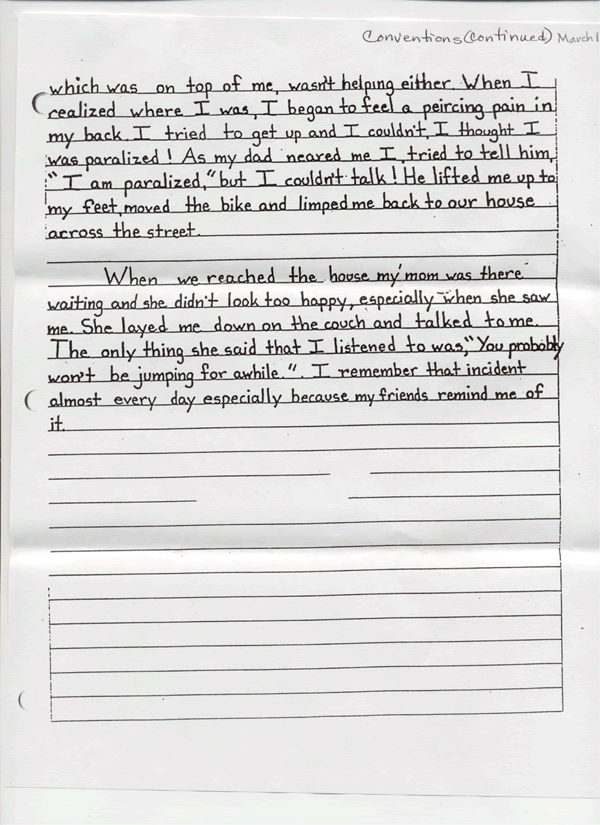 Conventions (Continued) March 1
which was on top of me, wasn't helping either. When I
realized where I was, I began to feel a peircing pain in
my back. I tried to get up and I couldn't, I thought I
was paralized! As my dad neared me I, tried to tell him,
"I am paralized," but I couldn't talk! He lifted me up to
my feet, moved the bike and limped me back to our house
across the street.
When we reached the house my mom was there
waiting and she didn't look too happy, especially when she saw
me. She layed me down on the couch and talked to me.
The only thing she said that I listened to was, "You probably
won't be jumping for awhile.". I remember that incident
almost every day especially because my friends remind me of
it.